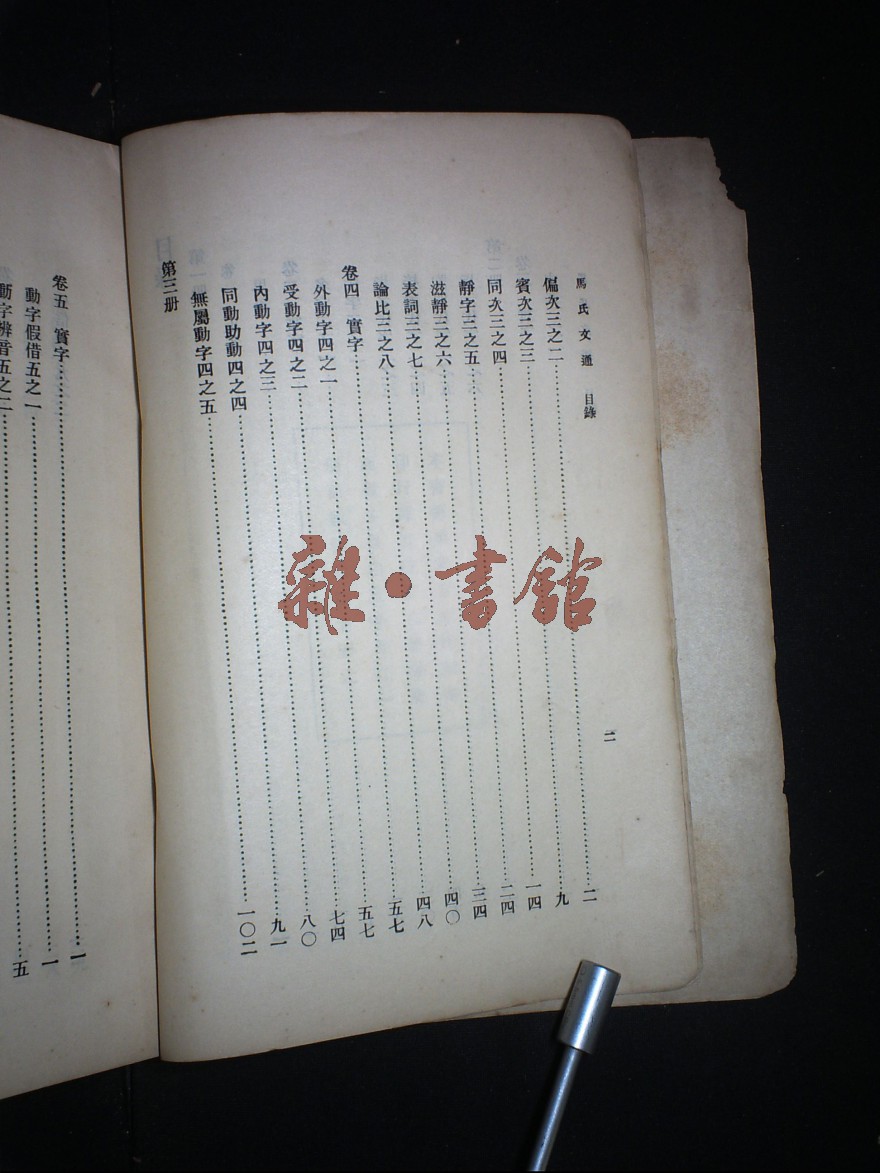 馬氏文通 目錄 二
偏次三之二……二
賓次三之三……九
同次三之四……一四
靜字三之五……二四
滋靜三之六……三四
表詞三之七……四〇
論比三之八……四八
卷四 實字……五七
外動字四之一……五七
受動字四之二……七四
內動字四之三……八〇
同動助動四之四……九一
無屬動字四之五……一〇二
第三册
卷五 實字……一
動字假借五之一……一
動字辨音五之二……五
雜·書館